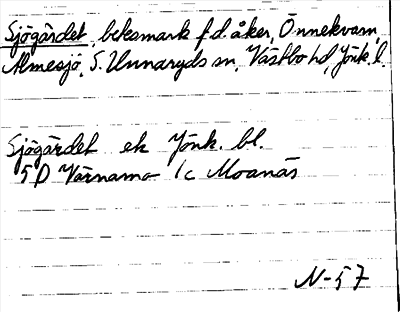 Sjögärdet, beksmark f.d. åker, Önnekvarn,
Almesjö, S. Unnaryds sn, Västbo hd, Jönk. l.
Sjögärdet ek Jönk. bl.
5D Värnamo 1c Moanäs
N-57